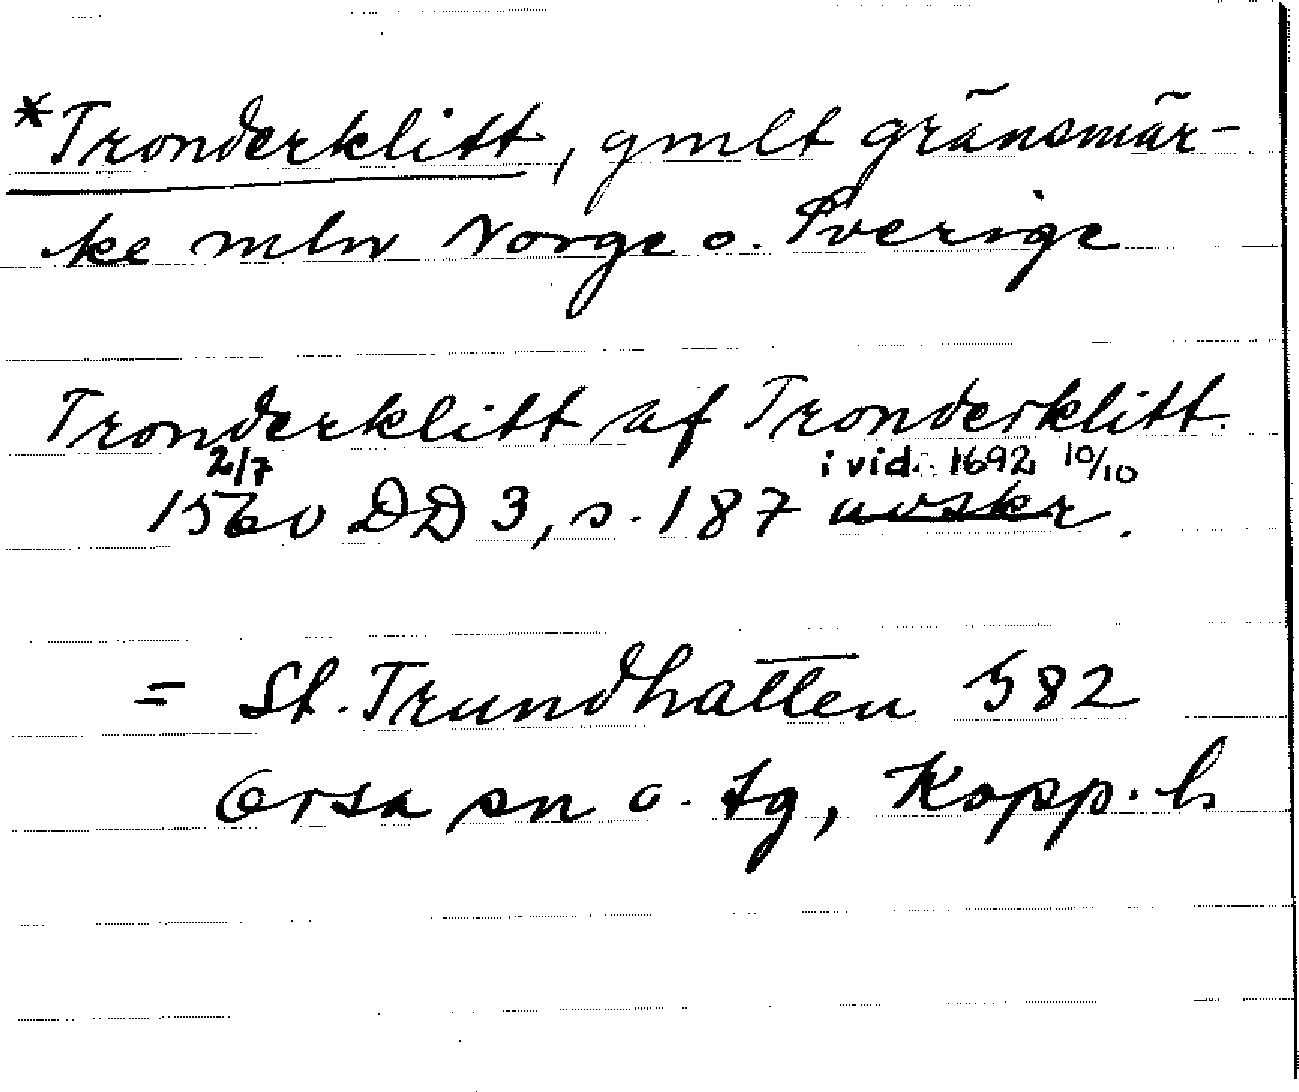 *Tronderklitt, gmlt gränsmär-
ke mln Norge o. Sverige
Tronderklitt af Tronderklitt.
2/7 i vid. 1692 10/10
1560 DD 3, s. 187 avskr.
= St. Trundhatten 582
Orsa sn o. tg, Kopp. l.